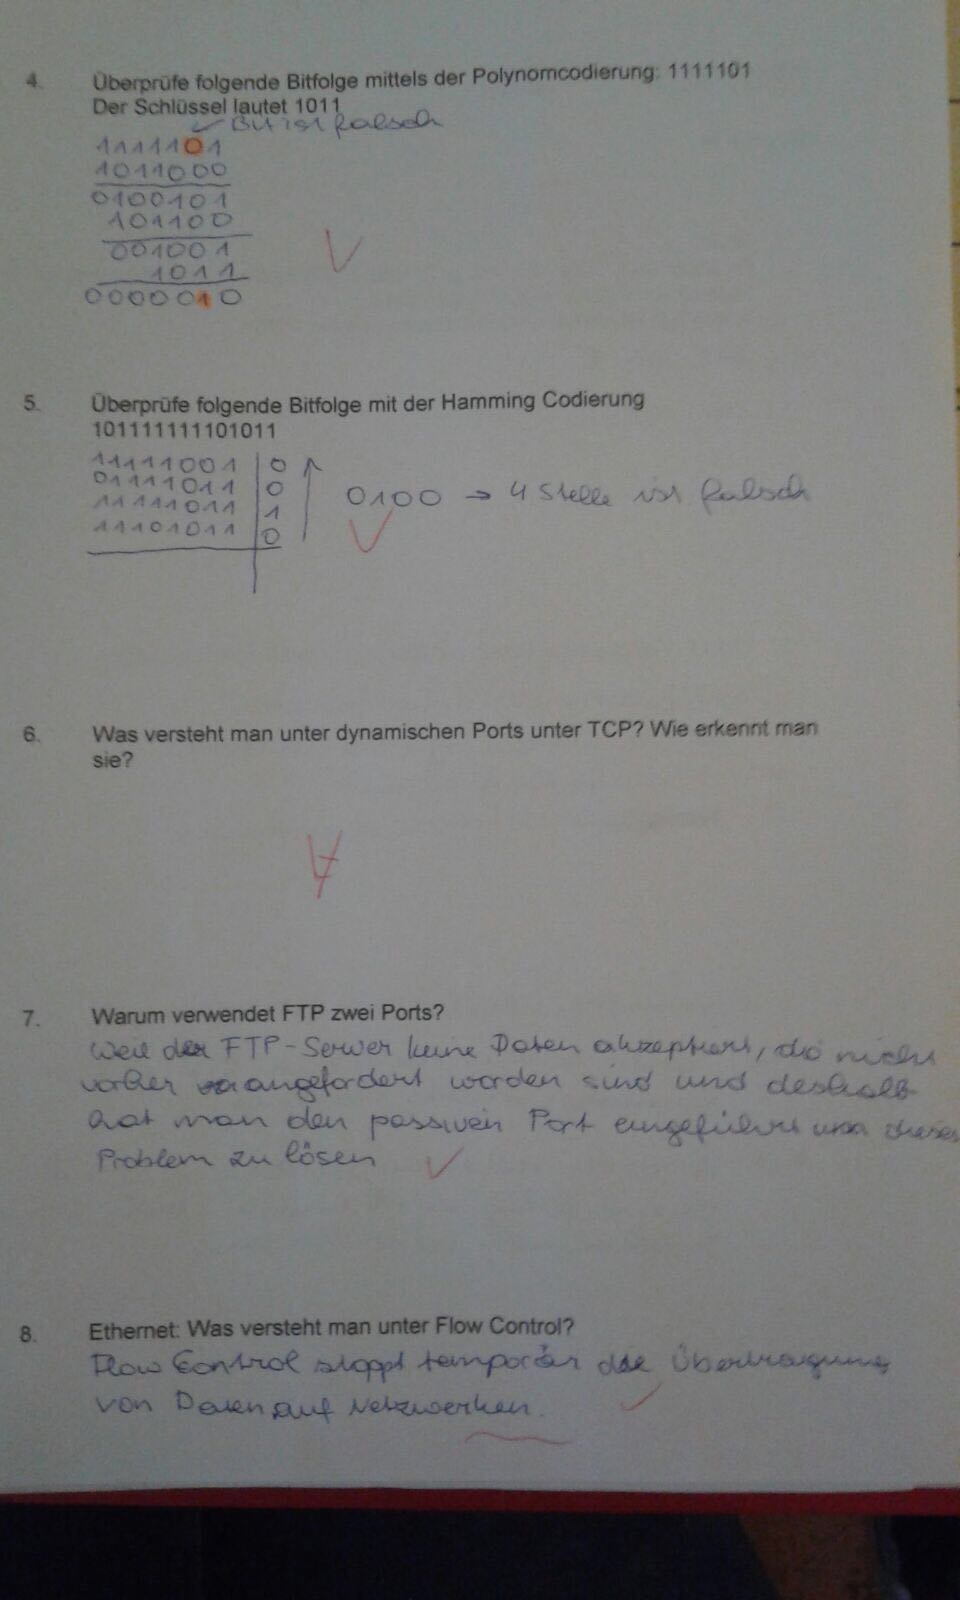 4. Überprüfe folgende Bitfolge mittels der Polynomcodierung: 1111101
Der Schlüssel lautet 1011
Bit ist falsch
1111101
1011000
0100101
101100
001001
1011
0000010
5. Überprüfe folgende Bitfolge mit der Hamming Codierung
101111111101011
11111001 0
01111011 0
11111011 1
11101011 0
0100 → 4 Stelle ist falsch
6. Was versteht man unter dynamischen Ports unter TCP? Wie erkennt man
sie?
7. Warum verwendet FTP zwei Ports?
Weil der FTP-Server keine Daten akzeptiert, die nicht
vorher angefordert worden sind und deshalb
hat man den passiven Port eingeführt um dieses
Problem zu lösen
8. Ethernet: Was versteht man unter Flow Control?
Flow Control stoppt temporär die Übertragung
von Daten auf Netzwerken.